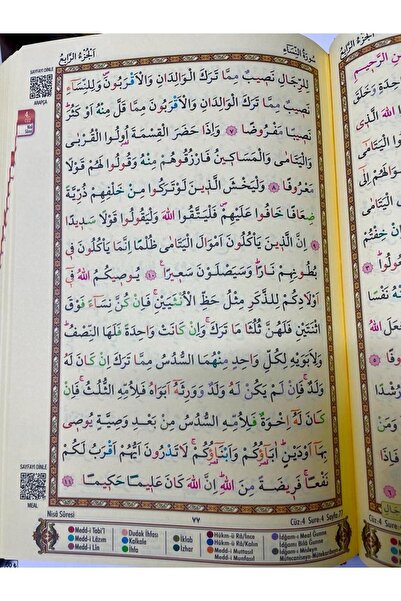 الجزء الرابع
سورة النساء
SAYFAYI DİNLE
ARAPÇA
لِلرِّجَالِ نَصٖيبٌ مِمَّا تَرَكَ الْوَالِدَانِ وَالْاَقْرَبُونَۖ وَلِلنِّسَٓاءِ
نَصٖيبٌ مِمَّا تَرَكَ الْوَالِدَانِ وَالْاَقْرَبُونَ مِمَّا قَلَّ مِنْهُ اَوْ كَثُرَؕ
نَصٖيبًا مَفْرُوضًا ﴿٧﴾ وَاِذَا حَضَرَ الْقِسْمَةَ اُو۬لُوا الْقُرْبٰى
وَالْيَتَامٰى وَالْمَسَاكٖينُ فَارْزُقُوهُمْ مِنْهُ وَقُولُوا لَهُمْ قَوْلًا
مَعْرُوفًا ﴿٨﴾ وَلْيَخْشَ الَّذٖينَ لَوْ تَرَكُوا مِنْ خَلْفِهِمْ ذُرِّيَّةً
ضِعَافًا خَافُوا عَلَيْهِمْۖ فَلْيَتَّقُوا اللّٰهَ وَلْيَقُولُوا قَوْلًا سَدٖيدًا
﴿٩﴾ اِنَّ الَّذٖينَ يَأْكُلُونَ اَمْوَالَ الْيَتَامٰى ظُلْمًا اِنَّمَا يَأْكُلُونَ فٖى
بُطُونِهِمْ نَارًاؕ وَسَيَصْلَوْنَ سَعٖيرًا ﴿١٠﴾ يُوصٖيكُمُ اللّٰهُ فٖٓى
اَوْلَادِكُمْ لِلذَّكَرِ مِثْلُ حَظِّ الْاُنْثَيَيْنِۚ فَاِنْ كُنَّ نِسَٓاءً فَوْقَ
اثْنَتَيْنِ فَلَهُنَّ ثُلُثَا مَا تَرَكَۚ وَاِنْ كَانَتْ وَاحِدَةً فَلَهَا النِّصْفُؕ
وَلِاَبَوَيْهِ لِكُلِّ وَاحِدٍ مِنْهُمَا السُّدُسُ مِمَّا تَرَكَ اِنْ كَانَ لَهُ
وَلَدٌۚ فَاِنْ لَمْ يَكُنْ لَهُ وَلَدٌ وَوَرِثَهُٓ اَبَوَاهُ فَلِاُمِّهِ الثُّلُثُۚ فَاِنْ
كَانَ لَهُٓ اِخْوَةٌ فَلِاُمِّهِ السُّدُسُ مِنْ بَعْدِ وَصِيَّةٍ يُوصٖى
بِهَٓا اَوْ دَيْنٍؕ اٰبَٓاؤُ۬كُمْ وَاَبْنَٓاؤُ۬كُمْۚ لَا تَدْرُونَ اَيُّهُمْ اَقْرَبُ لَكُمْ
نَفْعًاؕ فَرٖيضَةً مِنَ اللّٰهِؕ اِنَّ اللّٰهَ كَانَ عَلٖيمًا حَكٖيمًا ﴿١١﴾
SAYFAYI DİNLE
MEAL
Nisâ Sûresi
٧٧
Cüz:4 Sure:4 Sayfa:77
Medd-i Tabi'î
Medd-i Lâzım
Medd-i Lîn
Dudak İhfası
Kalkale
İhfa
İklab
İzhar
Hükm-ü Râ/İnce
Hükm-ü Râ/Kalın
Medd-i Muttasıl
Medd-i Munfasıl
İdğam-ı Meal Gunne
İdğam-ı Bilâ Gunne
İdğam-ı Misleyn
Mütecaniseyn-Mütekaribeyn